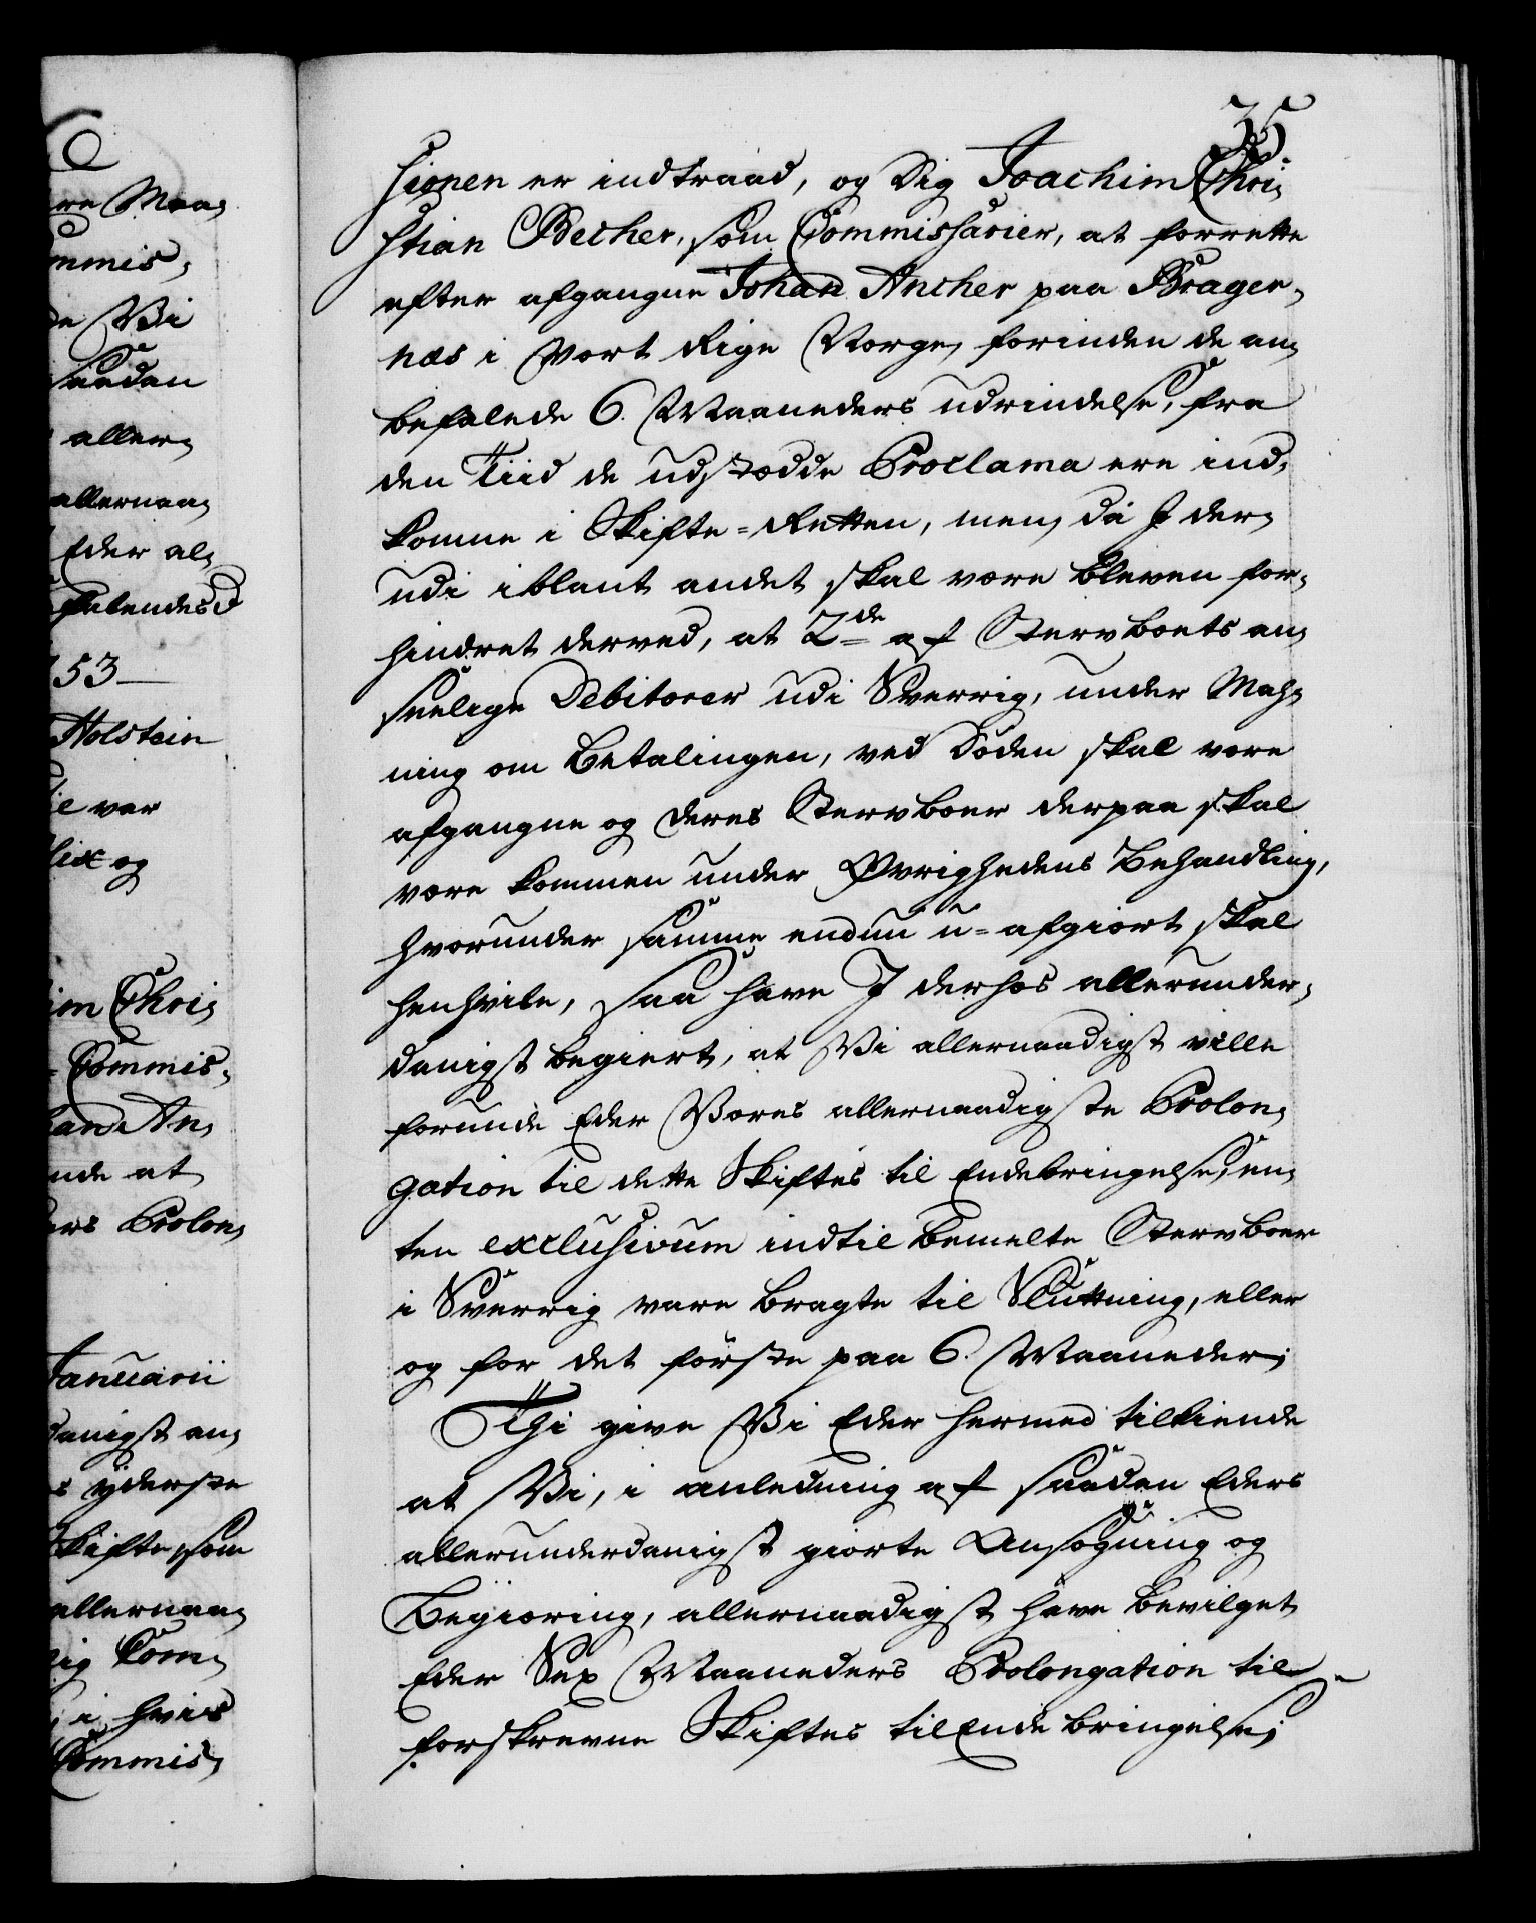 35
sionen er indtraad, og Dig Joachim Chri,
stian Becher, som Commissarier, at forrette
efter afgangne Johan Ancher paa Brager,
næs i Vort Rige Norge, forinden de an,
befalede 6. Maaneders udrindelse, fra
den Tiid de udstædde Proclama ere ind,
komne i Skifte-Retten, men, da I der,
udi iblant andet skal være bleven for,
hindret derved, at 2de af Sterboets an,
seelige Debitorer udi Sverrig, under Mah,
ning om Betalingen, ved Døden skal være
afgangne og deres Stervboer derpaa skal
være kommen under Øvrighedens Behandling,
hvorunder samme endnu u-afgiort skal
henhvile, saa have I derhos allerunder,
danigst begiert, at Vi allernaadigst ville
forunde Eder Vores allernaadigste Prolon,
gation til dette Skiftes til Endebringelse, en,
ten exclusivum indtil bemelte Stervboer
i Sverrig vare bragte til Sluttning, eller
og for det første paa 6. Maaneder;
Thi give Vi Eder hermed tilkiende
at Vi, i anledning af saadan Eders
allerunderdanigst giorte Ansøgning og
Begiæring, allernaadigst have bevilget
Eder Sex Maaneders Prolongation til
forskrevne Skiftes tilEndebringelse;
re Maa,
mmis,
de Vi
saadan
aller,
allernaa,
Eder al,
befalendes
753
Holstein
til var
og
im Chri,
Commis,
an An,
nde at
ers Prolon,
Januarii
danigst an,
s yderste
Skifte, som
allernaa,
ig kom,
i hvis
Commis,